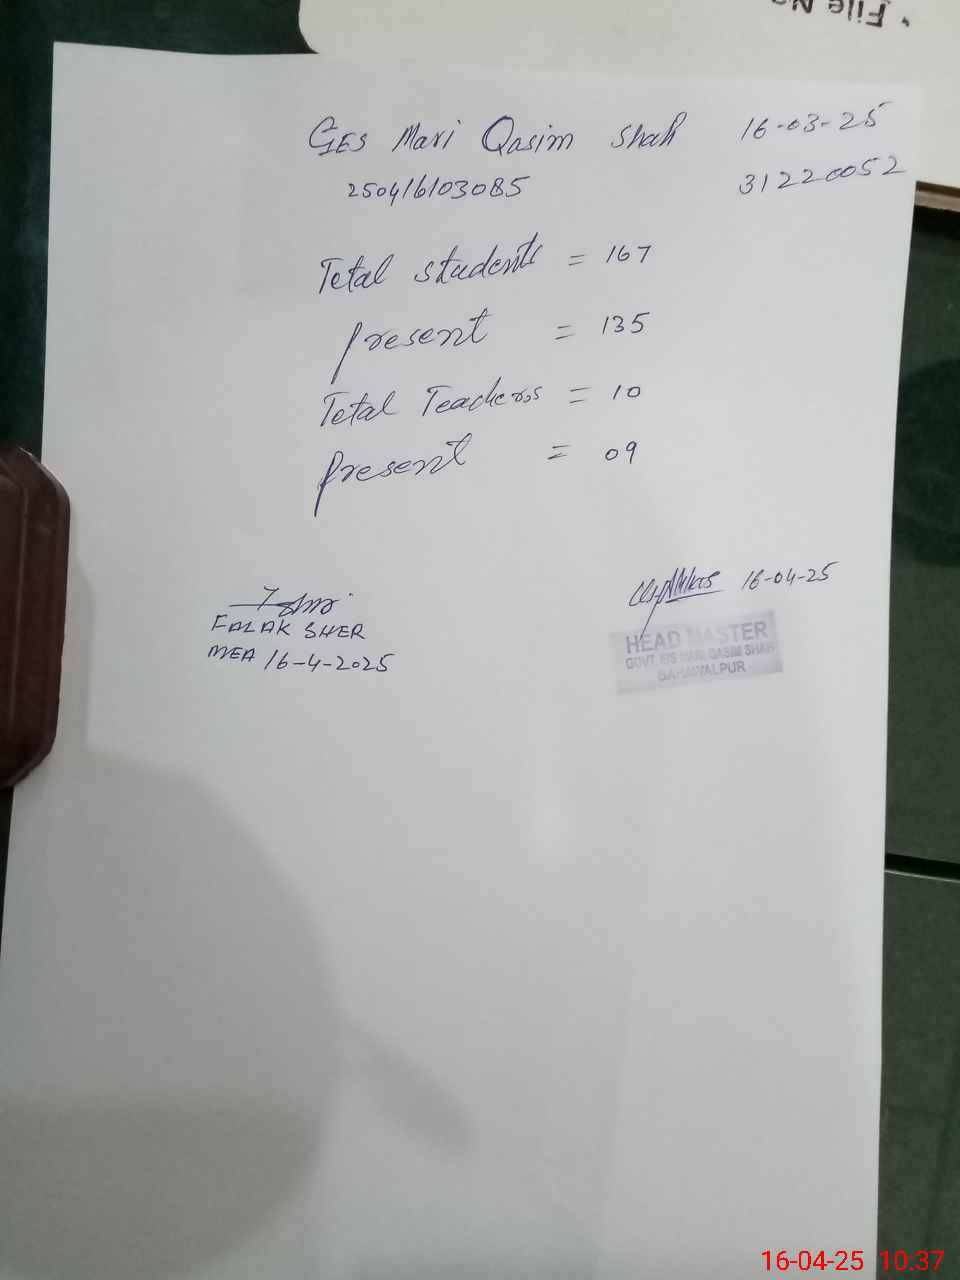 File No
GES Mari Qasim Shah 16-03-25
250416103085 31220052
Total students = 167
present = 135
Total Teachers = 10
present = 09
16-04-25
FALAK SHER
MEA 16-4-2025
HEAD MASTER
GOVT. E/S MARI QASIM SHAH
BAHAWALPUR
16-04-25 10:37